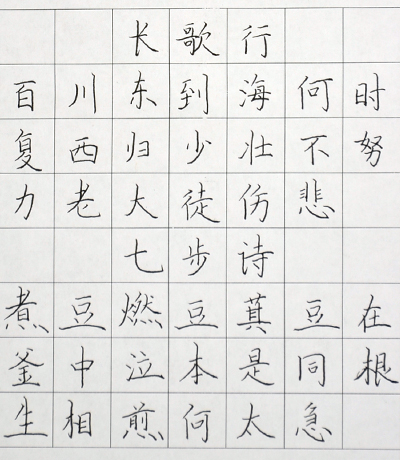 长歌行
百川东到海何时
复西归少壮不努
力老大徒伤悲
七步诗
煮豆燃豆萁豆在
釜中泣本是同根
生相煎何太急